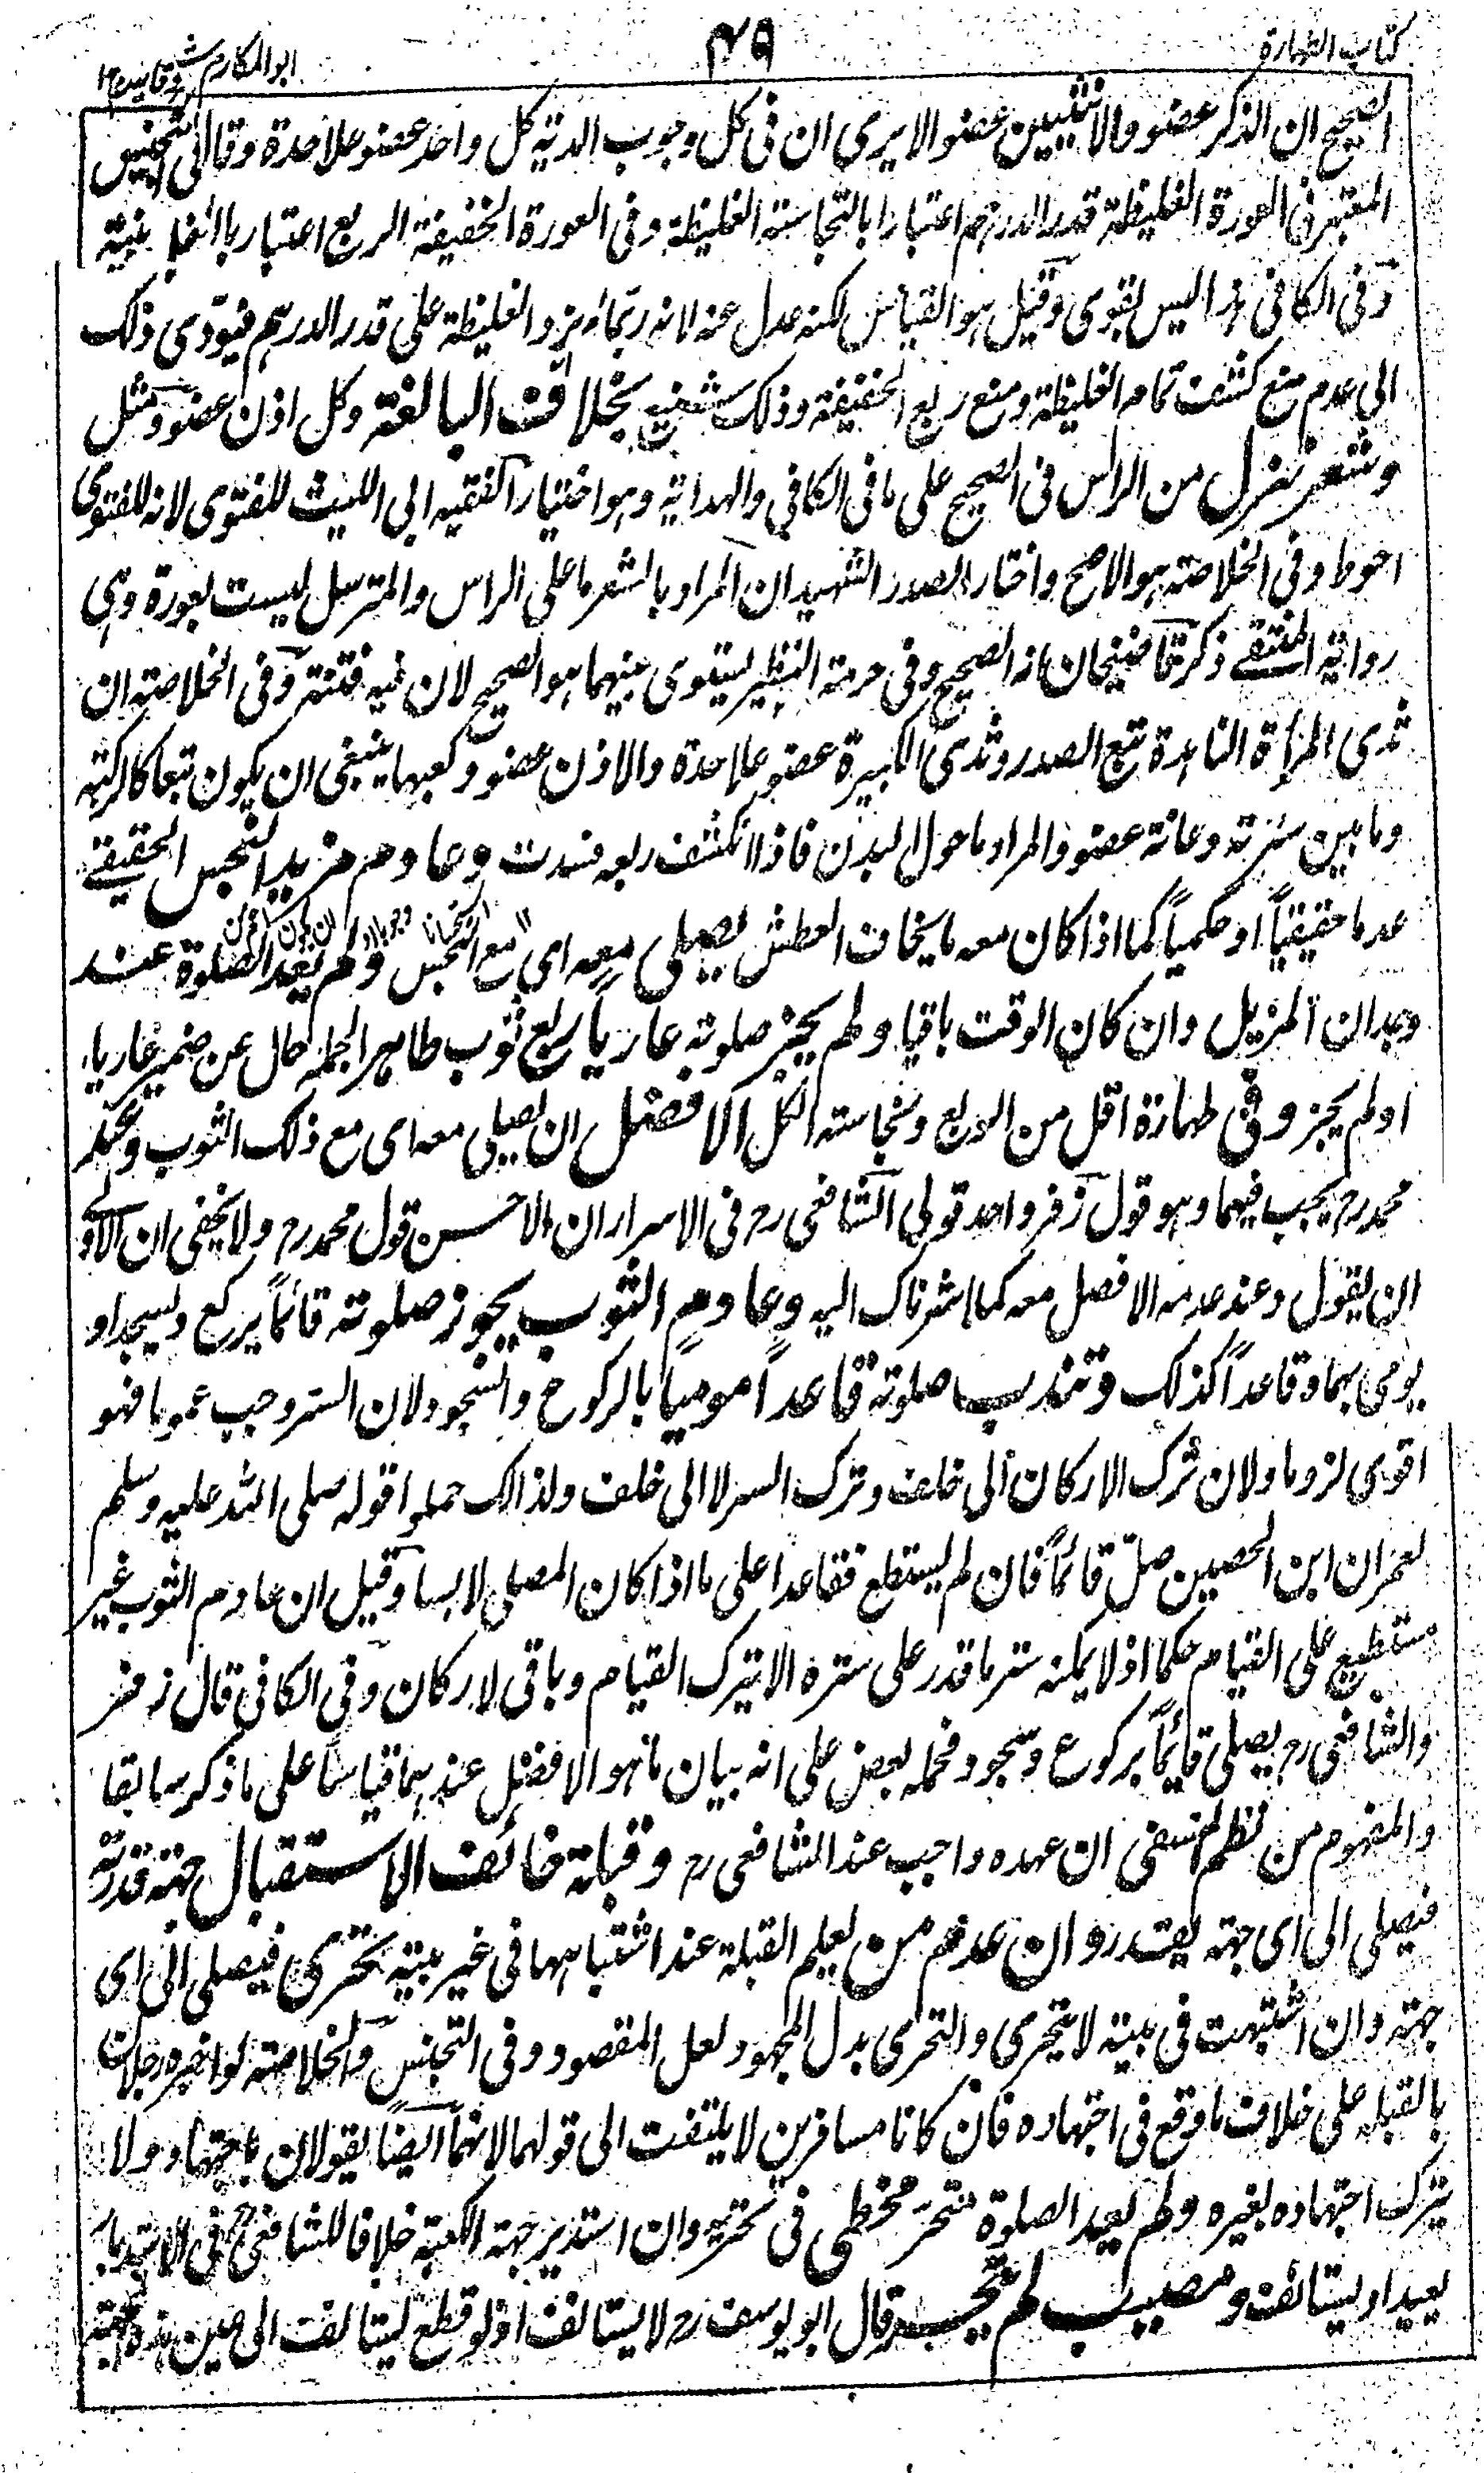 كتاب الطهارة
۴۵
ابو المكارم شرح وقايه ۱۲
الصحيح ان الذكر عضو والانثيين عضو الا يرى ان فى كل وجوب الدية كل واحد عضو علاحدة وقال فى التجنيس
المعتبر فى العورة الغليظة قدر الدرهم اعتبارا بالنجاسة الغليظة وفى العورة الخفيفة الربع اعتبارا بالخفيفة
وفى الكافى هذا ليس بقوى وقيل هو القياس لكنه عدل عنه لانه ربما لم يزد الغليظة على قدر الدرهم فيؤدى ذلك
الى عدم منع كشف تمام الغليظة ومنع ربع الخفيفة وذلك شنيع بخلاف البالغة وكل اذن عضو ومثل
وشعر نزل من الراس فى الصحيح على ما فى الكافى والهداية وهو اختيار الفقيه ابى الليث للفتوى لانه للفتوى
احوط وفى الخلاصة هو الاصح واختار الصدر الشهيد ان المراد بالشعر ما على الراس والمترسل ليست بعورة وهى
رواية المنتقى ذكر قاضيخان انه الصحيح وفى حرمة النظر يستوى بينهما هو الصحيح لان فيه فتنة وفى الخلاصة ان
ثدى المرأة الناهدة تتبع الصدر وثدى الكبيرة عضو علاحدة والاذن عضو وكعبها ينبغى ان يكون تبعا كالركبة
وما بين سرته وعانة عضو والمراد ما حول البدن فاذا انكشف ربعه فسدت وعادم مزيل النجس الحقيقى
عدما حقيقياً او حكمياً كما اذا كان معه ما يخاف العطش يصلى معه اى مع النجس ولم يعد الصلوة عند
وجدان المزيل وان كان الوقت باقيا ولم يجز صلوته عارياً ربع ثوب طاهر الجملة حال عن ضمير عاريا
او لم يجز وفى طهارة اقل من الربع ونجاسة الكل الافضل ان يصلى معه اى مع ذلك الثوب وعند
محمد رح يجب فيهما وهو قول زفر واحد قولى الشافعى رح فى الاسرار ان الاحسن قول محمد رح ولا يخفى ان الاولى
ان يقول وعند عدمه الافضل معه كما اشرناك اليه وعادم الثوب يجوز صلوته قائماً يركع ويسجد او
يومى بهما وقاعداً كذلك وتندب صلوته قاعداً مومياً بالركوع والسجود لان الستر وجب عموما فهو
اقوى لزوما ولان ترك الاركان الى خلف وترك الستر لا الى خلف ولذالك حملوا قوله صلى الله عليه وسلم
لعمران ابن الحصين صلّ قائماً فان لم يستطع فقاعدا على ما اذا كان المصلى لابسا وقيل ان عادم الثوب غير
مستطيع على القيام حكما اذ لا يمكنه ستر ما قدر على ستره الا بترك القيام وباقى لاركان وفى الكافى قال زفر
والشافعى رح يصلى قائماً بركوع وسجود فحمله بعض على انه بيان ما هو الافضل عندهما قياساً على ما ذكر سابقا
والمفهوم من نظم النسفى ان عهده واجب عند الشافعى رح وقبلة خائف الاستقبال جهة قدرته
فيصلى الى اى جهة يقدر وان عدم من يعلم القبلة عند اشتباهها فى غير بيته يتحرى فيصلى الى اى
جهة وان اشتبهت فى بيته لا يتحرى والتحرى بدل المجهود لعل المقصود وفى التجنيس والخلاصة لو اخبره رجلان
بالقبلة على خلاف ما وقع فى اجتهاده فان كانا مسافرين لا يلتفت الى قولهما لانهما ايضاً يقولان باجتهاد ولا
يترك اجتهاده لغيره ولم يعد الصلوة متحر مخطى فى تحريه وان استدبر جهة الكعبة خلافا للشافعى رح فى الاستدبار
يعيد او يستانف ومصيب لم يتحر وقال ابو يوسف رح لا يستانف اذ لو قطع ليستانف الى عين هذه الجهة